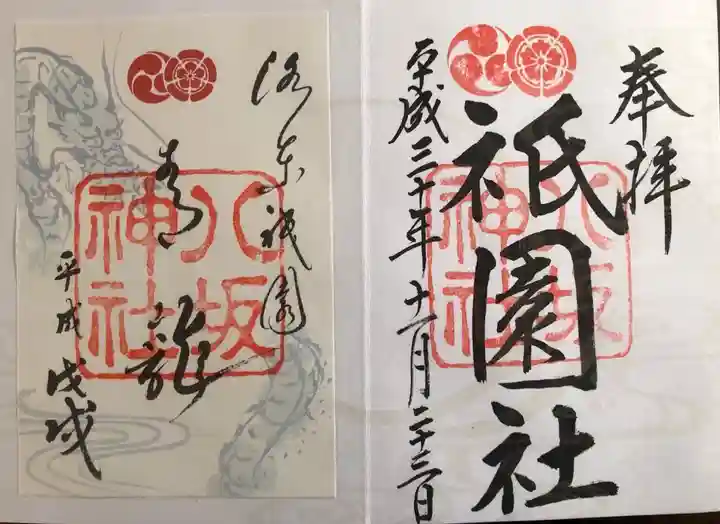 奉拝
祇園社
八坂
神社
平成三十年十一月二十三日
洛東祇園
青龍
八坂
神社
平成戊戌